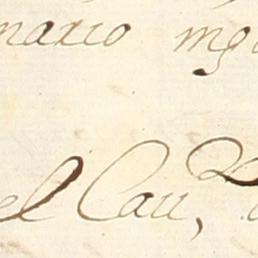 nario mg
el Cau,